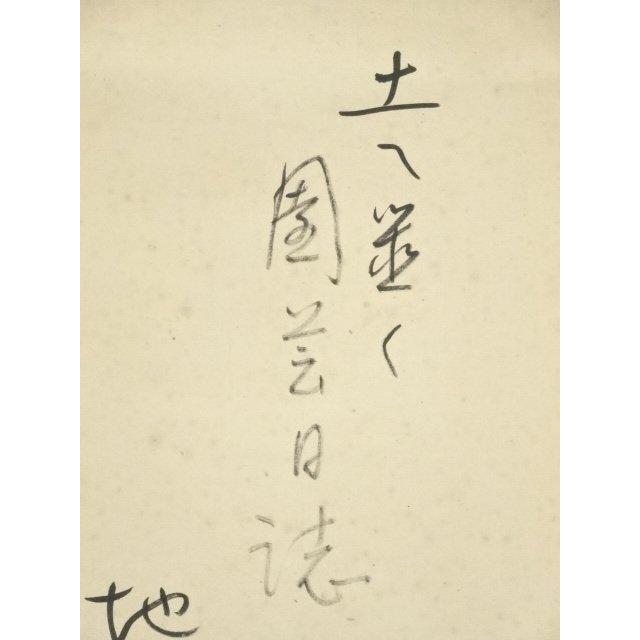 土へ置く
園芸日誌
地